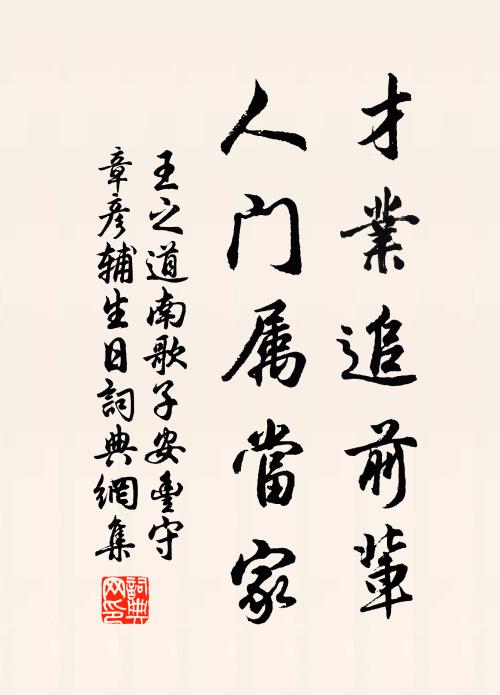 才業追前輩
人門属當家
王之道南歌子安豊守
章彦輔生日詞典網集
詞典网印